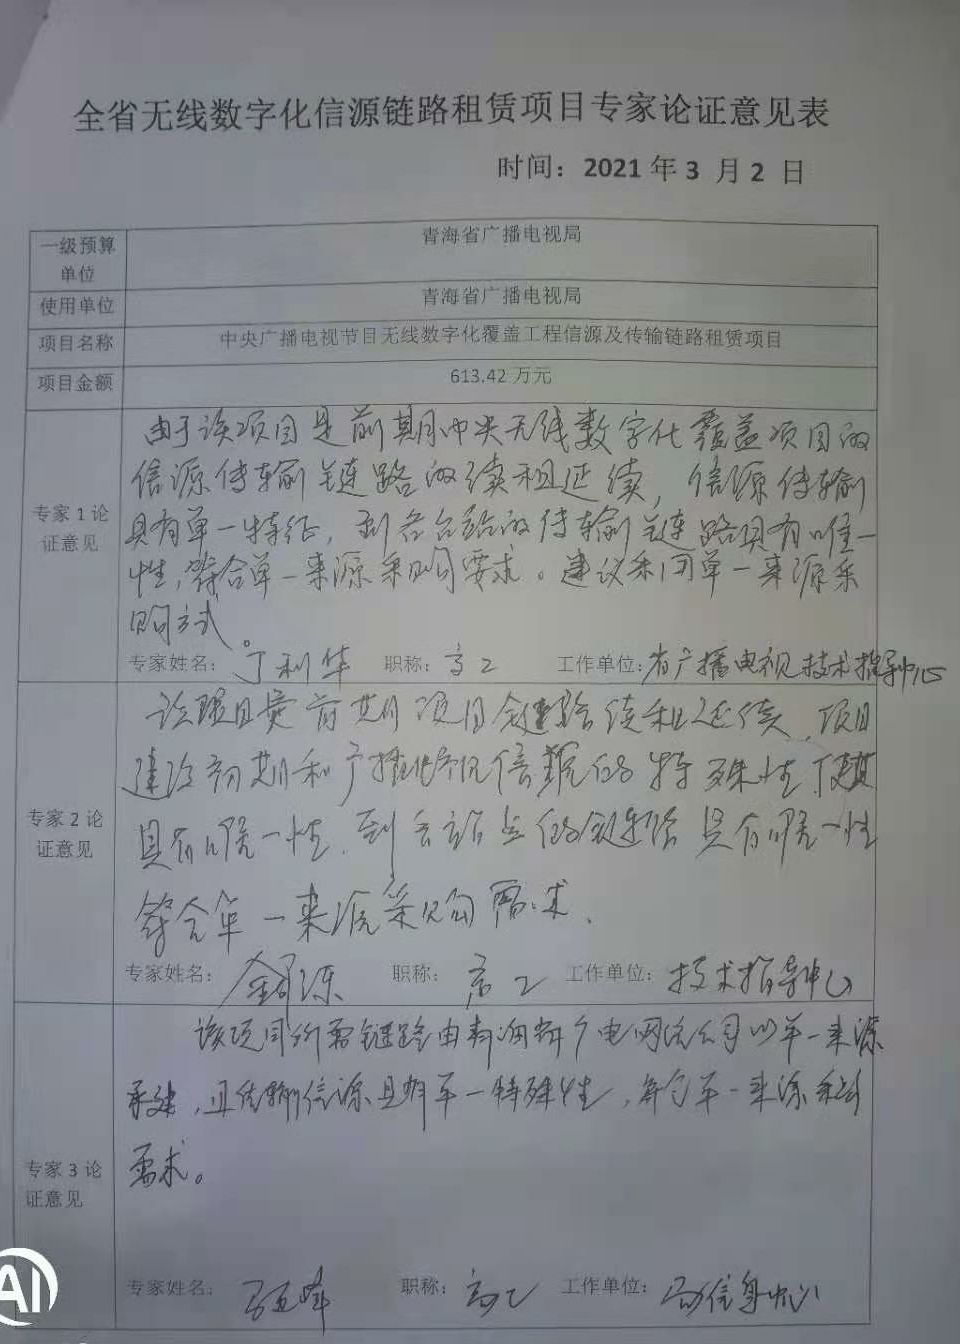 全省无线数字化信源链路租赁项目专家论证意见表
时间：2021 年 3 月 2 日
一级预算
单位
青海省广播电视局
使用单位
青海省广播电视局
项目名称
中央广播电视节目无线数字化覆盖工程信源及传输链路租赁项目
项目金额
613.42 万元
专家 1 论
证意见
由于该项目是前期中央无线数字化覆盖项目的
信源传输链路的续租延续，信源传输
具有单一特征，到各台站的传输链路具有唯一
性，符合单一来源采购要求。建议采用单一来源采
购方式。
专家姓名： 丁利华 职称： 高工 工作单位： 省广播电视技术指导中心
专家 2 论
证意见
该项目是前期项目链路续租延续，项目
建设初期和广播电视信源的特殊性
具有唯一性，到各站点的链路具有唯一性
符合单一来源采购需求。
专家姓名： 源 职称： 高工 工作单位： 技术指导中心
专家 3 论
证意见
该项目所需链路由青海省广电网络公司以单一来源
承建，且传输信源具有单一特殊性，符合单一来源采购
需求。
专家姓名： 职称： 高工 工作单位： 局信息中心
AI